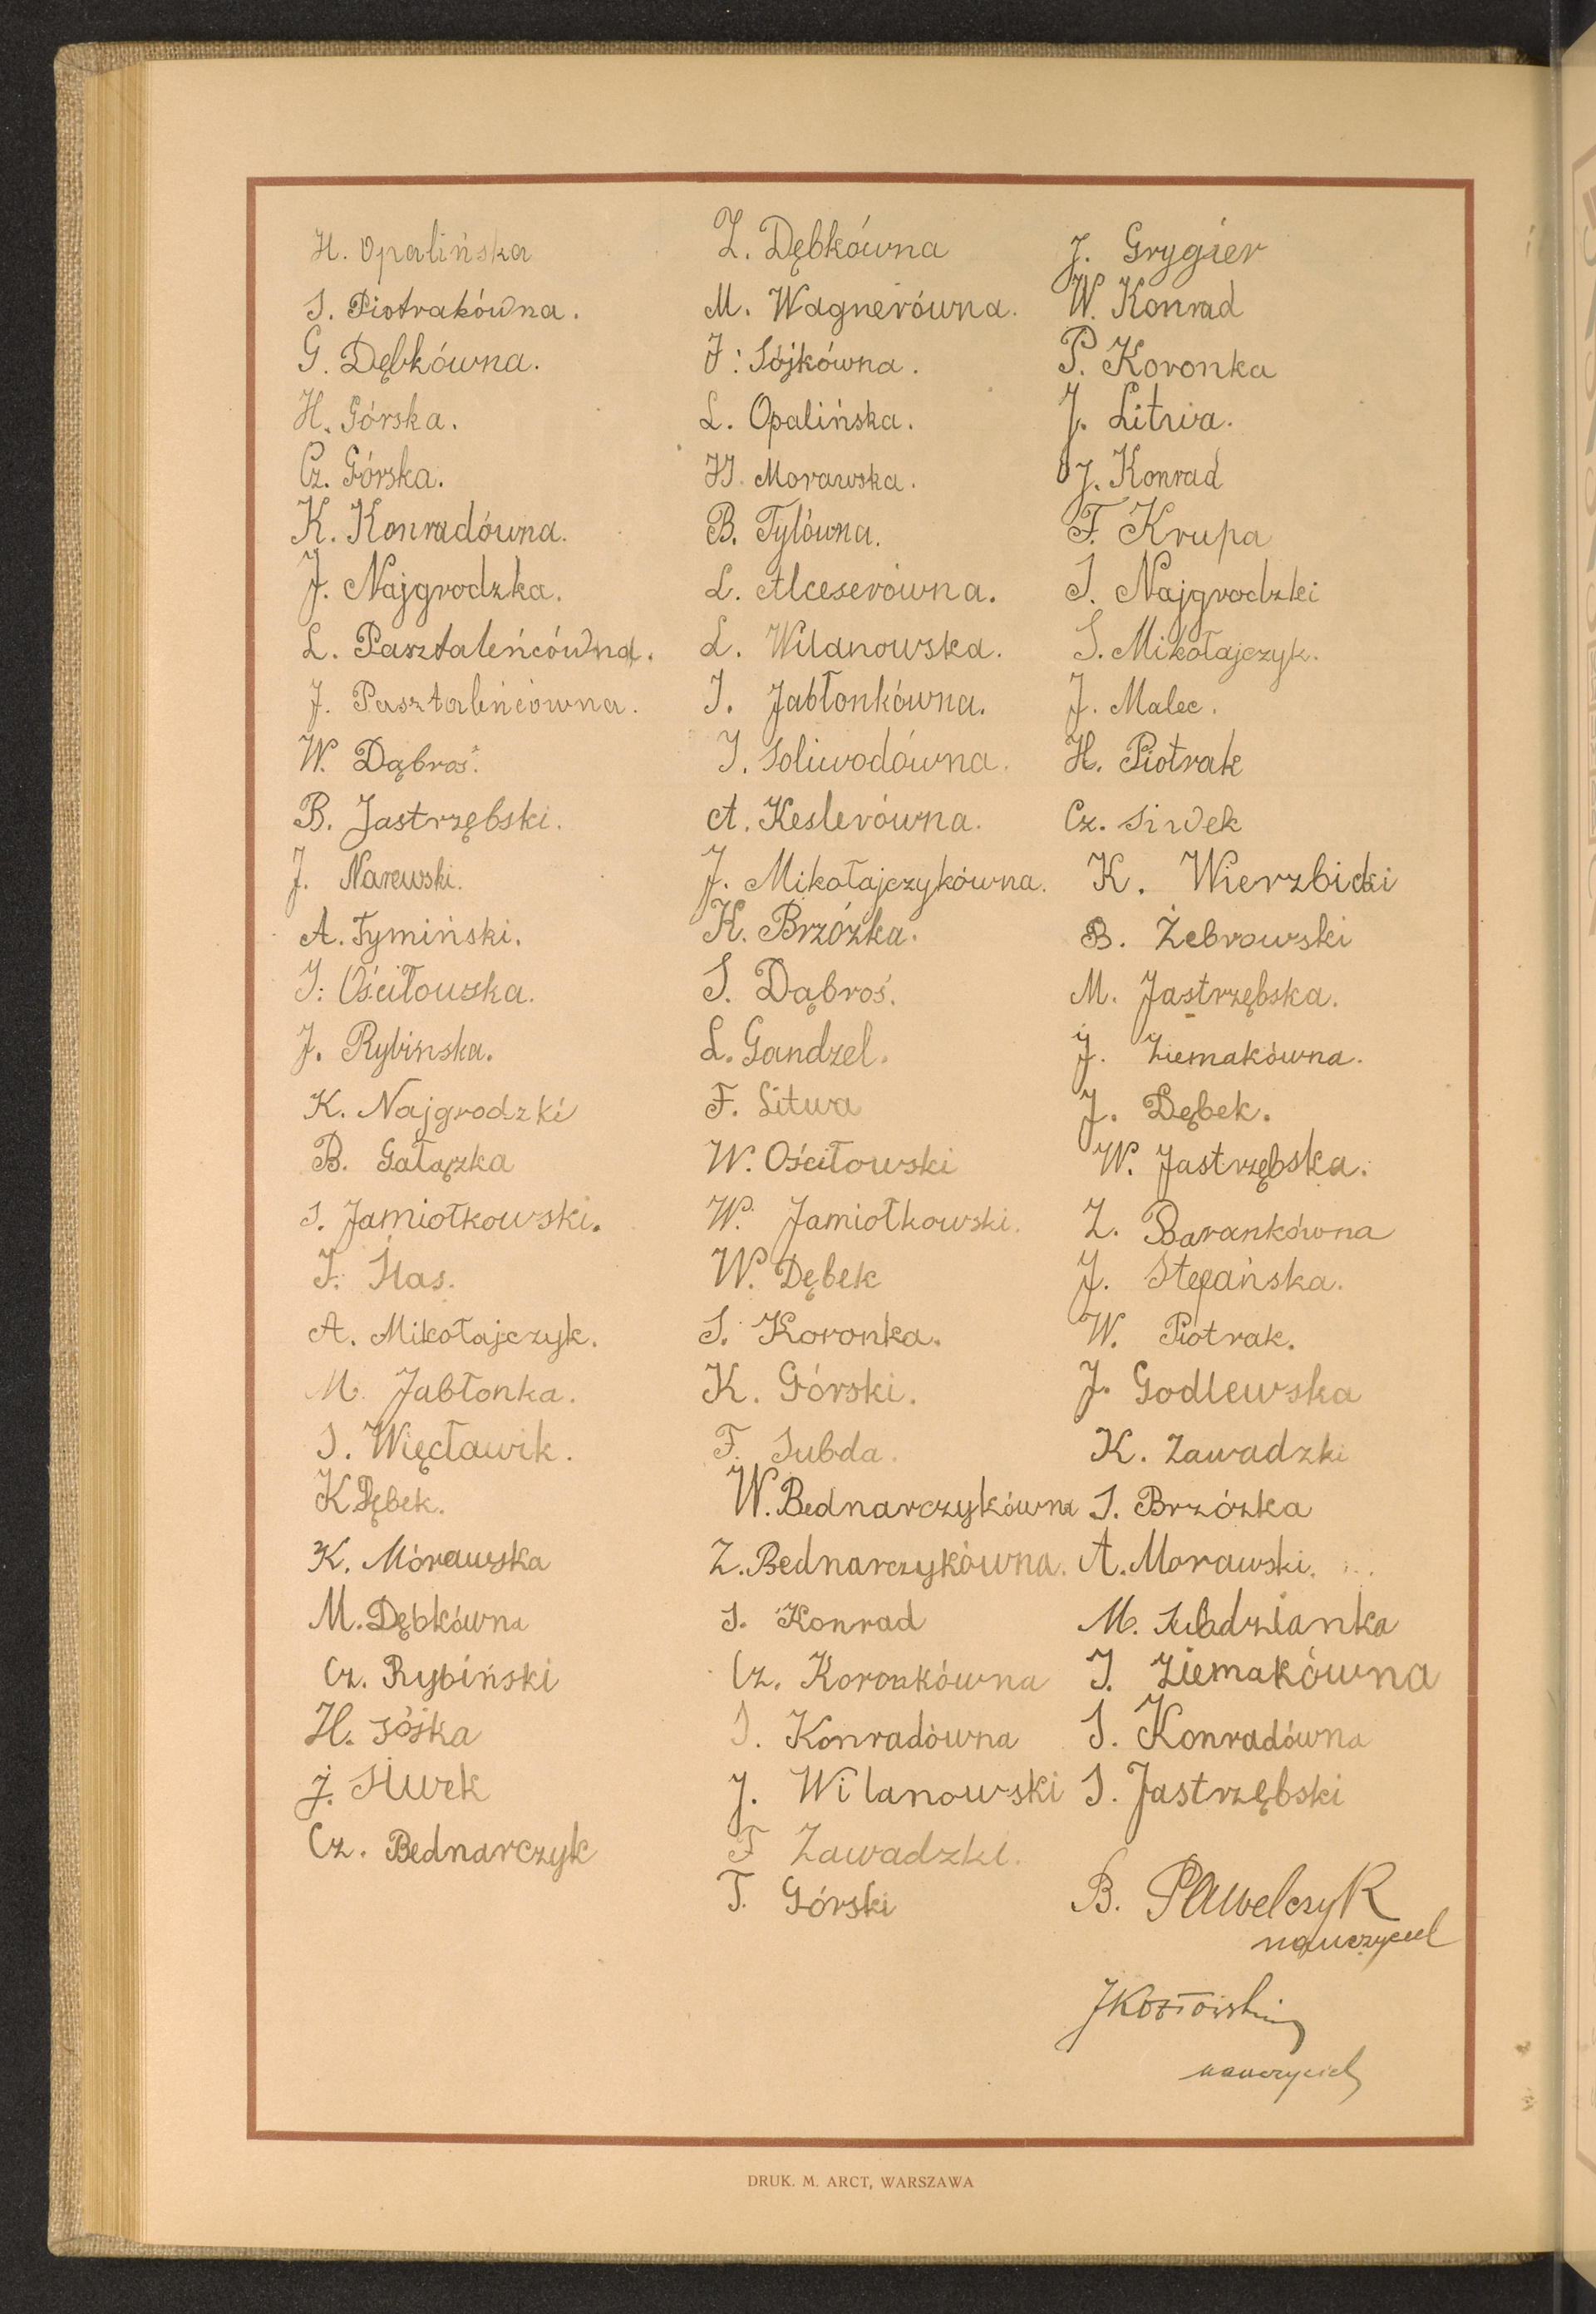 H. Opalińska
S. Piotrakówna.
G. Dębkówna.
H. Górska.
Cz. Górska.
K. Konradówna.
J. Najgrodzka.
L. Pasztaleńcówna.
J. Pasztaleńcówna.
W. Dąbroś.
B. Jastrzębski.
J. Narewski.
A. Tymiński.
I. Ościłowska.
J. Rybinska.
K. Najgrodzki
B. Gałązka
S. Jamiołkowski.
A. Mikołajczyk.
M. Jabłonka.
S. Więcławik.
K Dębek.
K. Mórawska
M. Dębkówna
Cz. Rybiński
H. Sójka
J. Siwek
Cz. Bednarczyk
Z. Dębkówna
M. Wagnerówna.
J. Sójkówna.
L. Opalińska.
H. Morawska.
B. Tylówna.
L. Alceserówna.
L. Wilanowska.
I. Jabłonkówna.
I. Soliwodówna.
A. Keslerówna.
J. Mikołajczykówna.
K. Brzózka.
S. Dąbroś.
L. Gandzel.
F. Litwa
W. Ościłowski
W. Jamiołkowski.
W. Dębek
S. Koronka.
K. Górski.
F. Subda.
W. Bednarczykówna
Z. Bednarczykówna.
S. Konrad
Cz. Koronkówna
S. Konradówna
J. Wilanowski
F Zawadzki.
T. Górski
J. Grygier
W. Konrad
P. Koronka
J. Litwa.
J. Konrad
F. Krupa
S. Najgrodzki
S. Mikołajczyk.
J. Malec.
H. Piotrak
Cz. Siwek
K. Wierzbicki
B. Żebrowski
M. Jastrzębska.
J. Ziemakówna.
J. Dębek.
W. Jastrzębska.
Z. Barankówna
J. Stępańska.
W. Piotrak.
J. Godlewska
K. Zawadzki
S. Brzózka
A. Morawski.
M. Subdzianka
I. Ziemakówna
S. Konradówna
S. Jastrzębski
B. Pawelczyk
nauczyciel
J Kozłowski
nauczyciel
DRUK. M. ARCT, WARSZAWA